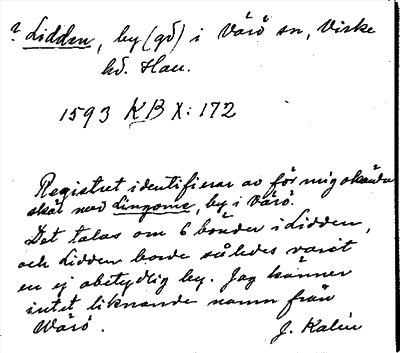 ? Lidden, by (gd) i Värö sn, Viske
hd. Hall.
1593 KB X: 172
Registret identifierar av för mig okända
skäl med Lingome, by i Värö.
Det talas om 6 bönder i Lidden,
och Lidden borde således varit
en ej obetydlig by. Jag känner
intet liknande namn från
Värö.
J. Kalén